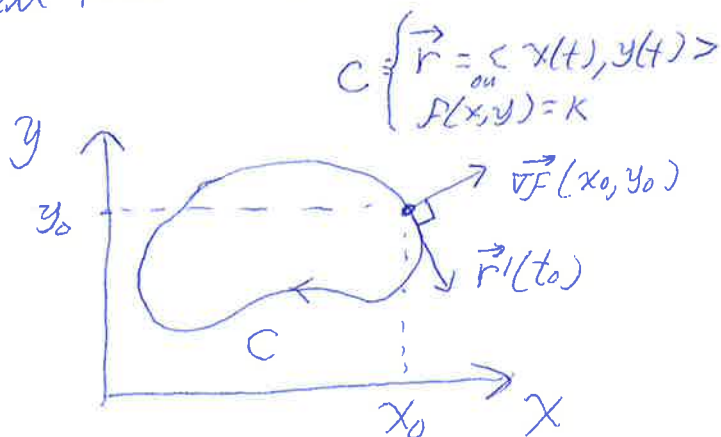 C = { r⃗ = < x(t), y(t) >
ou
f(x,y) = K
y
y₀
∇⃗f (x₀, y₀)
r⃗ '(t₀)
C
x₀
x